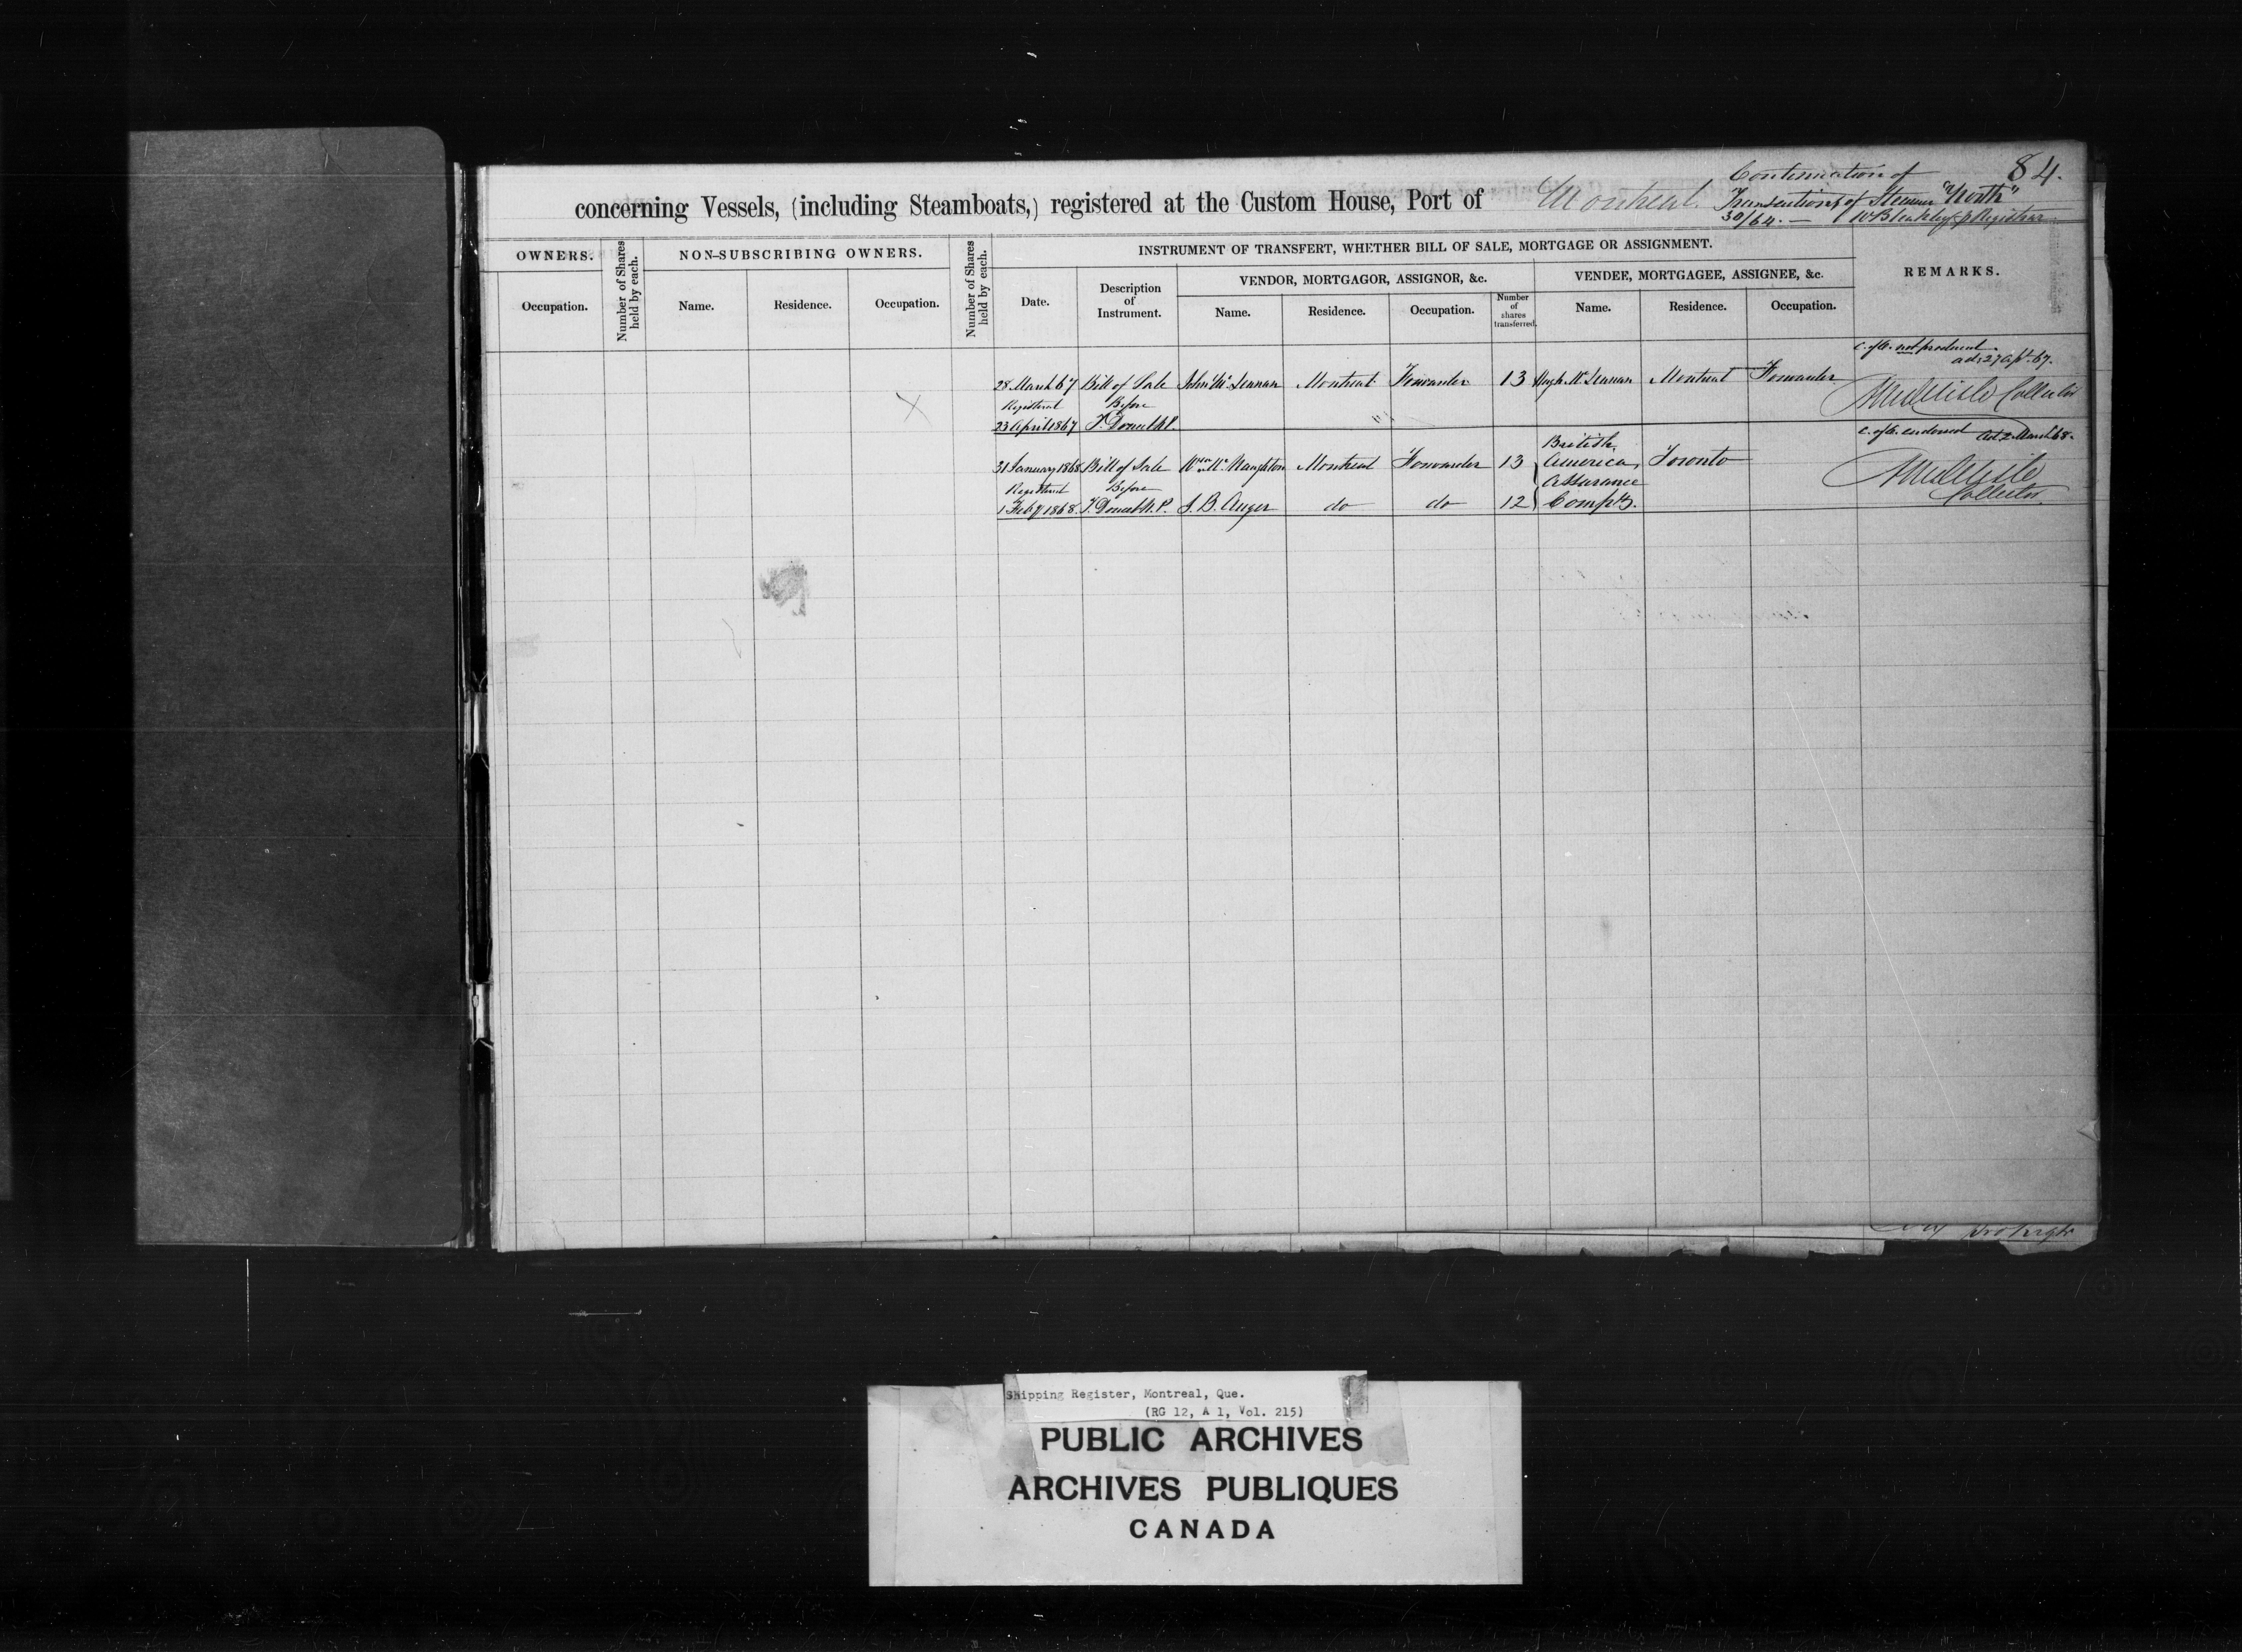 Continuation of 84.
concerning Vessels, (including Steamboats,) registered at the Custom House, Port of Montreal. Transactions of Steamer "North"
30/64. —
OWNERS. Number of Shares held by each. NON-SUBSCRIBING OWNERS. Number of Shares held by each. INSTRUMENT OF TRANSFERT, WHETHER BILL OF SALE, MORTGAGE OR ASSIGNMENT. REMARKS.
VENDOR, MORTGAGOR, ASSIGNOR, &c. VENDEE, MORTGAGEE, ASSIGNEE, &c.
Occupation. Name. Residence. Occupation. Date. Description of Instrument. Name. Residence. Occupation. Number of shares transferred. Name. Residence. Occupation.
C. of O. not produced.
ad: 27 Apl. 67.
28 March 67 Bill of Sale John Mc Lennan Montreal Forwarder 13 Hugh Mc Lennan Montreal Forwarder
Registered Before Collector
23 April 1867
C. of O. endorsed Ad. 2 March 68.
31 January 1868 Bill of Sale Wm Mc Naughton Montreal Forwarder 13 British America Toronto
Registered Before Assurance Collector
1 Feby 1868. J. B. Auger do do 12 Compy.
Shipping Register, Montreal, Que.
(RG 12, A 1, Vol. 215)
PUBLIC ARCHIVES
ARCHIVES PUBLIQUES
CANADA